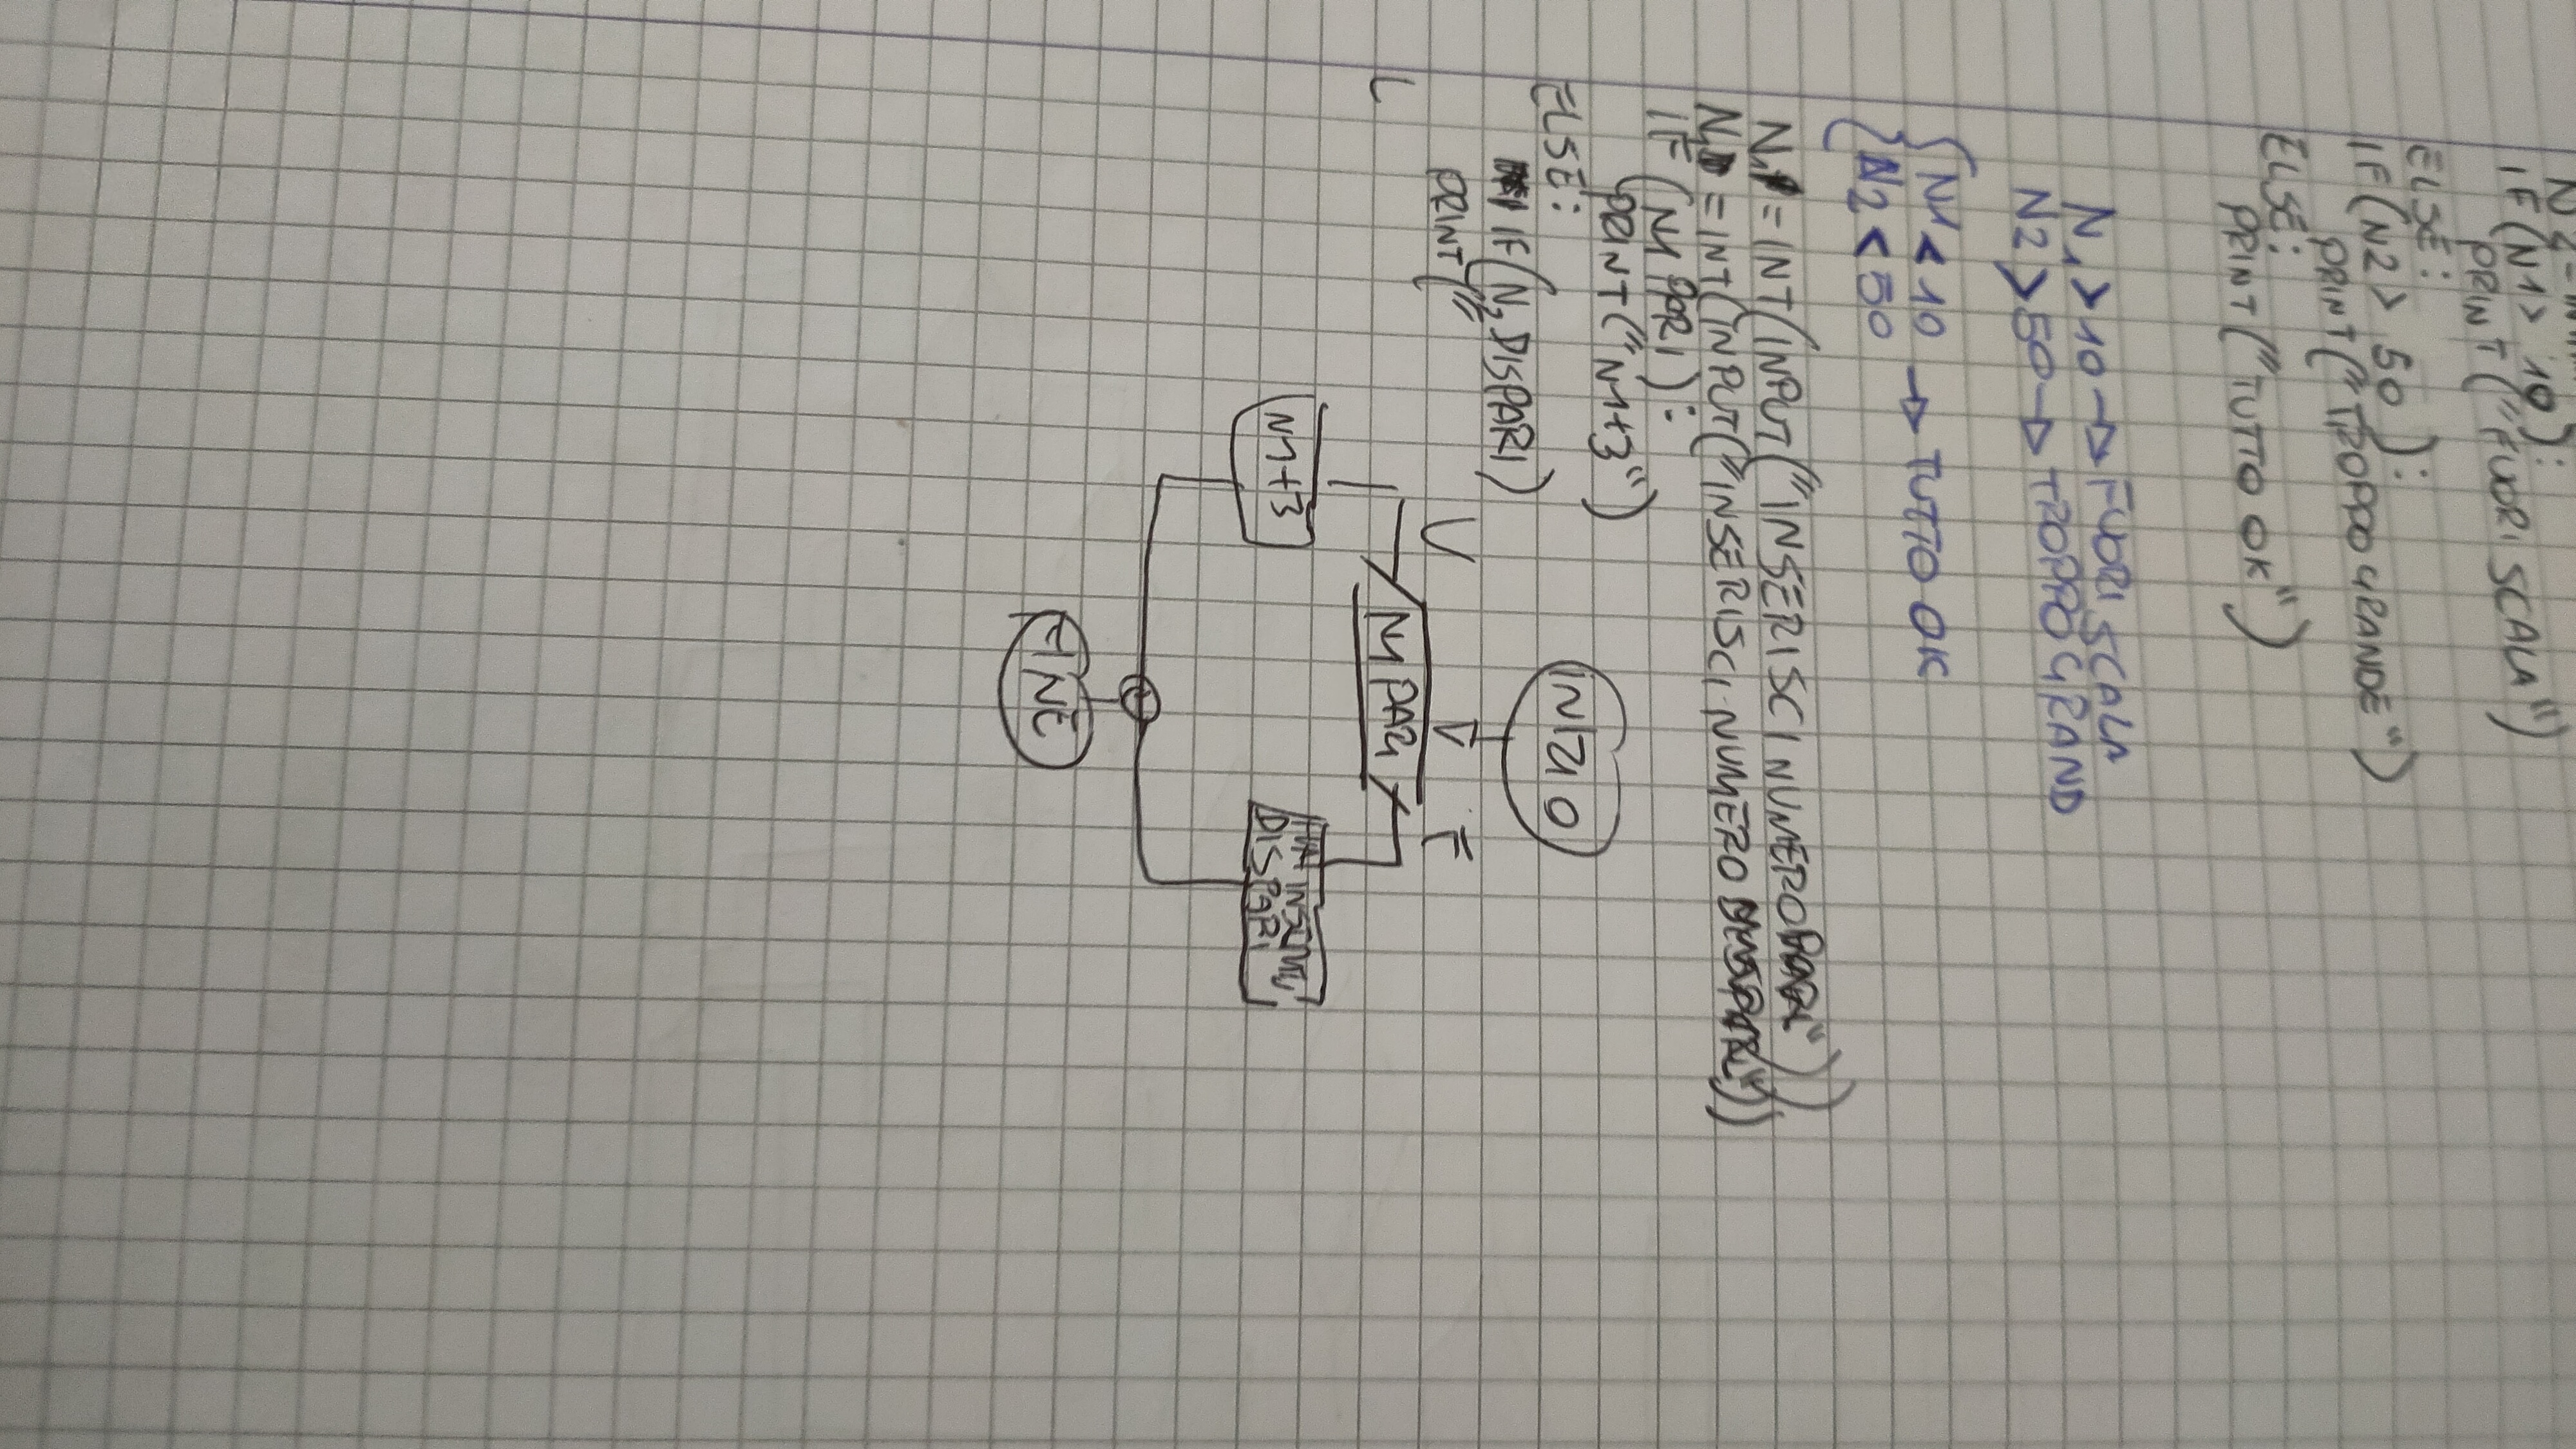 IF(N1> 10):
PRINT("FUORI SCALA")
ELSE:
IF(N2> 50):
PRINT("TROPPO GRANDE")
ELSE:
PRINT("TUTTO OK")
N1>10→FUORI SCALA
N2>50→TROPPO GRAND
{N1<10 → TUTTO OK
{N2<50
N1=INT(INPUT("INSERISCI NUMERO"))
N=INT(INPUT("INSERISCI NUMERO"))
IF(N1 PARI):
PRINT("N1+3")
ELSE:
IF(N2 DISPARI)
PRINT("
L
INIZIO
V
F
N1 PARI
N1+3
HAI INSERITO
DISPARI
FINE